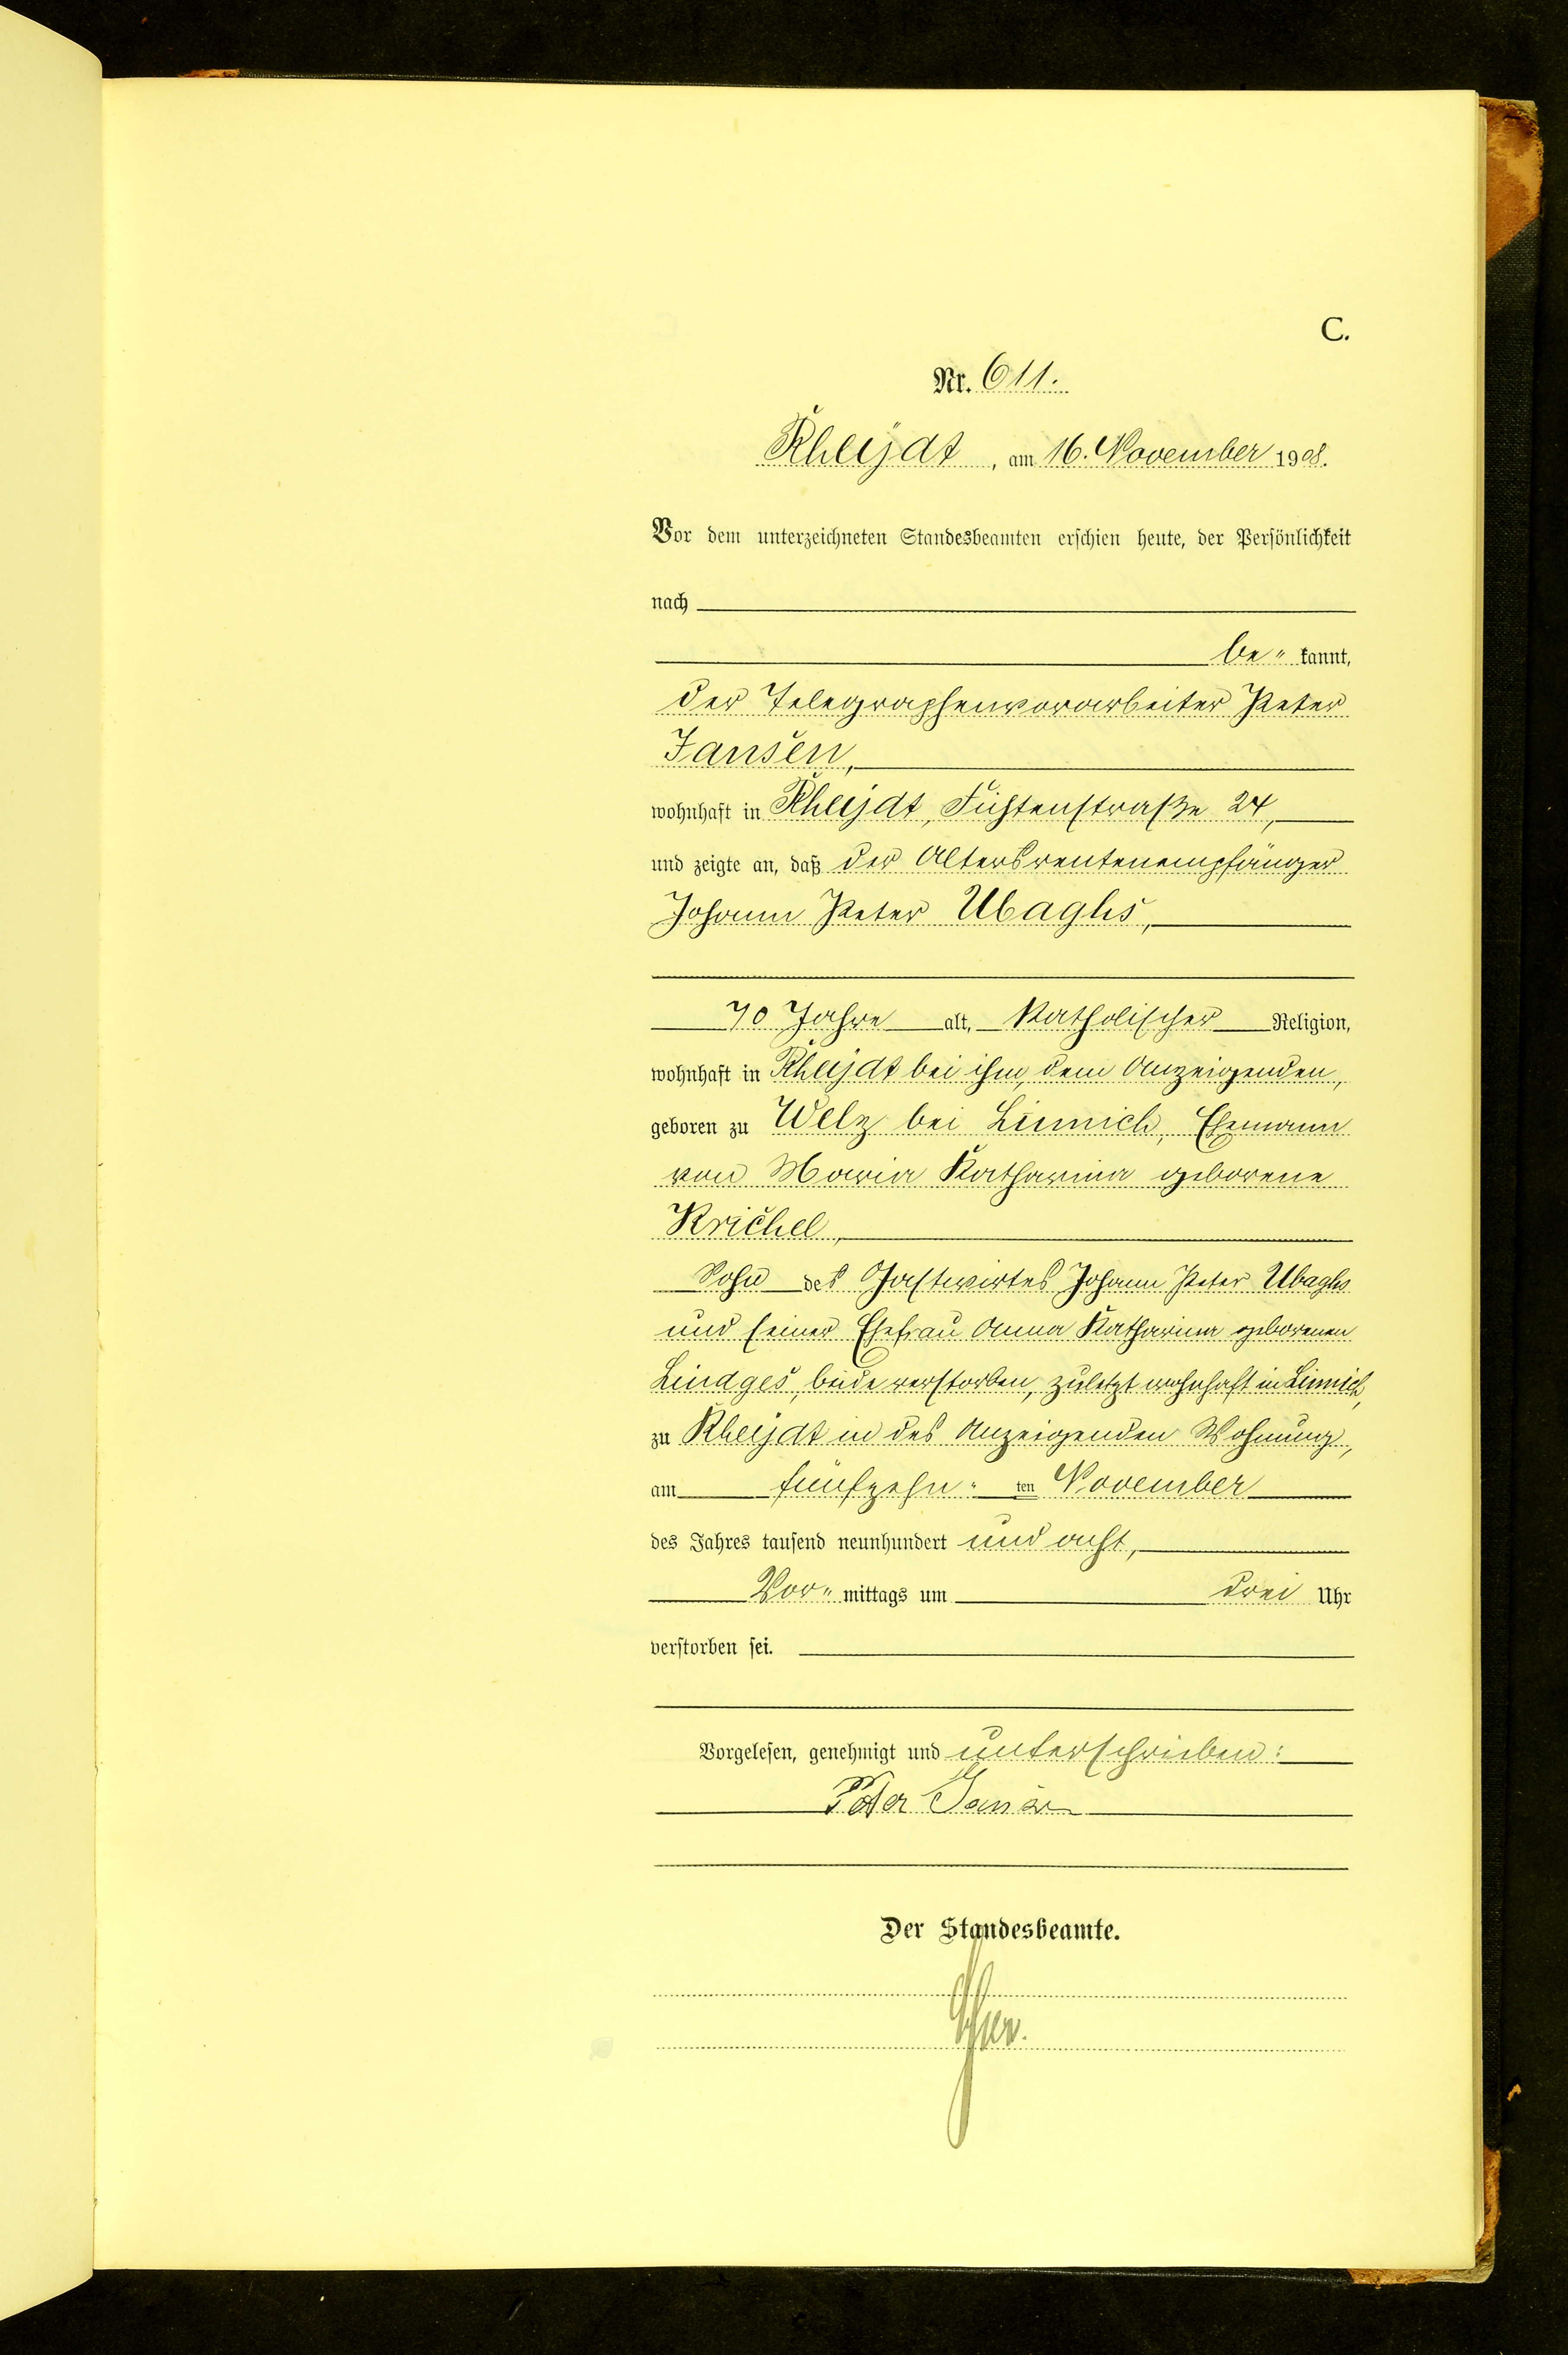 C.
Nr. 611.
Rheydt, am 16. November 1908.
Vor dem unterzeichneten Standesbeamten erschien heute, der Persönlichkeit
nach
be" kannt,
der Telegraphenvorarbeiter Peter
Jansen,
wohnhaft in Rheydt, Fichtenstraße 24,
und zeigte an, daß der Altersrentenempfänger
Johann Peter Ubaghs,
70 Jahre alt, Katholischer Religion,
wohnhaft in Rheydt bei ihm, dem Anzeigenden,
geboren zu Welz bei Linnich, Ehemann
von Maria Katharina geborene
Krichel,
Sohn des Gastwirtes Johann Peter Ubaghs
und seiner Ehefrau Anna Katharina geborenen
Lindges, beide verstorben, zuletzt wohnhaft in Linnich,
zu Rheydt in des Anzeigenden Wohnung,
am fünfzehn" ten November
des Jahres tausend neunhundert und acht,
Vor" mittags um drei Uhr
verstorben sei.
Vorgelesen, genehmigt und unterschrieben:
Peter Jansen
Der Standesbeamte.